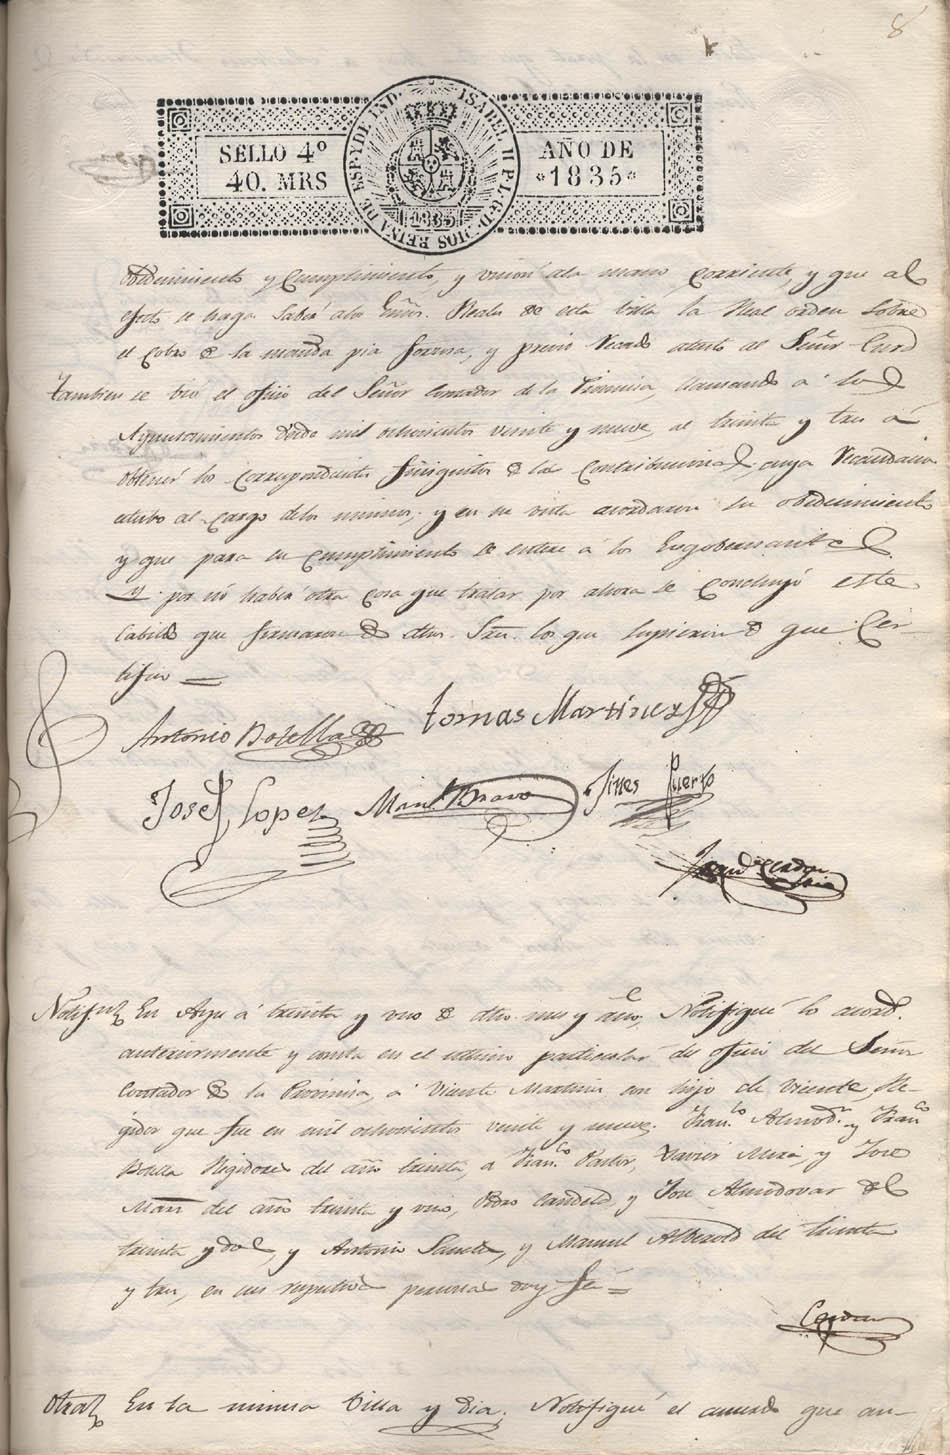 8
SELLO 4º
40. MRS
ISABEL II P.L.G.D. DIOS REINA DE ESP. Y DE IND.
1835
AÑO DE
1835
obedecimiento y cumplimiento, y union ala mano corriente, y que al
efecto se haga saber alos Esños. Reales de esta villa la Real orden sobre
el cobro de la manda pia forzosa, y previo Recado atento al Señor Cura
tambien se vió el oficio del Señor Contador de la Provincia, llamando á los
Ayuntamientos desde mil ochocientos veinte y nueve, al treinta y tres á
obtener los correspondientes finiquitos de las Contribuciones cuya Recaudacion
estubo al cargo delos mismos, y en su vista acordaron su obedecimiento
y que para su cumplimiento se entere á los Exgobernantes
y por nó haber otra cosa que tratar por ahora se concluyó este
Cabildo que firmaron de dhos. Sres. los que supieron de que Cer-
tifico =
Antonio Botella
Tomas Martinez
Josef Lopez
Manl. Bravo
Jines Puerto
Notifn. En Aspe á treinta y uno de dho. mes y año, Notifiqué lo acord.
anteriormente y consta en el ultimo particular de oficio del Señor
Contador de la Provincia, á Vicente Martinez con hijo de Vicente, Re-
gidor que fue en mil ochocientos veinte y nueve. Franco. Almodr. y Franco
Botella Regidores del año treinta, á Franco. Pastor, Xavier Mira, y Jose
Marn del año treinta y uno, Pedro Candela y Jose Almodovar del
treinta y dos, y Antonio Sanchez, y Manuel Alberola del treinta
y tres, en sus respectivas personas doy fé =
Otra En la misma Villa y dia, Notifiqué el acuerdo que an-